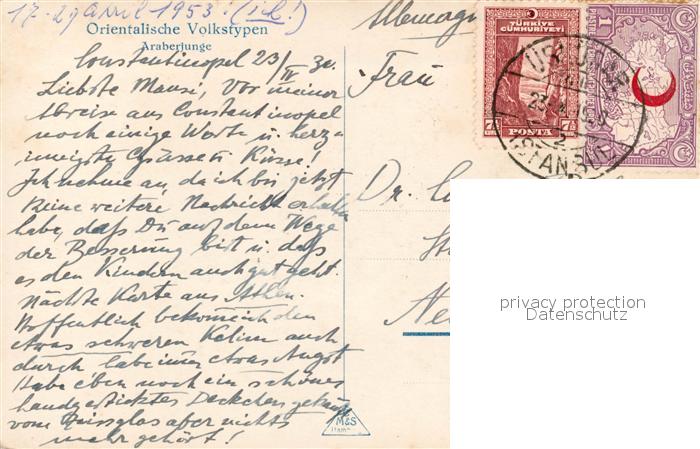 17-29 April 1953! (ich!)
Orientalische Volkstypen
Araberjunge
Constantinopel 23/IV 30.
Liebste Mausi, vor meiner
Abreise aus Constantinopel
noch einige Worte u. herz-
innigste Grüsse u. Küsse!
Ich nehme an, da ich bis jetzt
keine weitere Nachricht erhalten
habe, daß Du auf dem Wege
der Besserung bist u. daß
es den Kindern auch gut geht.
Nächste Karte aus Athen.
Hoffentlich bekomme ich den
etwas schweren Kelim auch
durch, habe immer etwas Angst
Habe eben noch ein schönes
handgesticktes Deckchen gekauft
vom aber nichts
mehr gehört!
Allemagne
Frau
Dr.
TÜRKİYE
CÜMHURİYETİ
7½ 7½
POSTA
1
ISTANBUL
M&S
privacy protection
Datenschutz